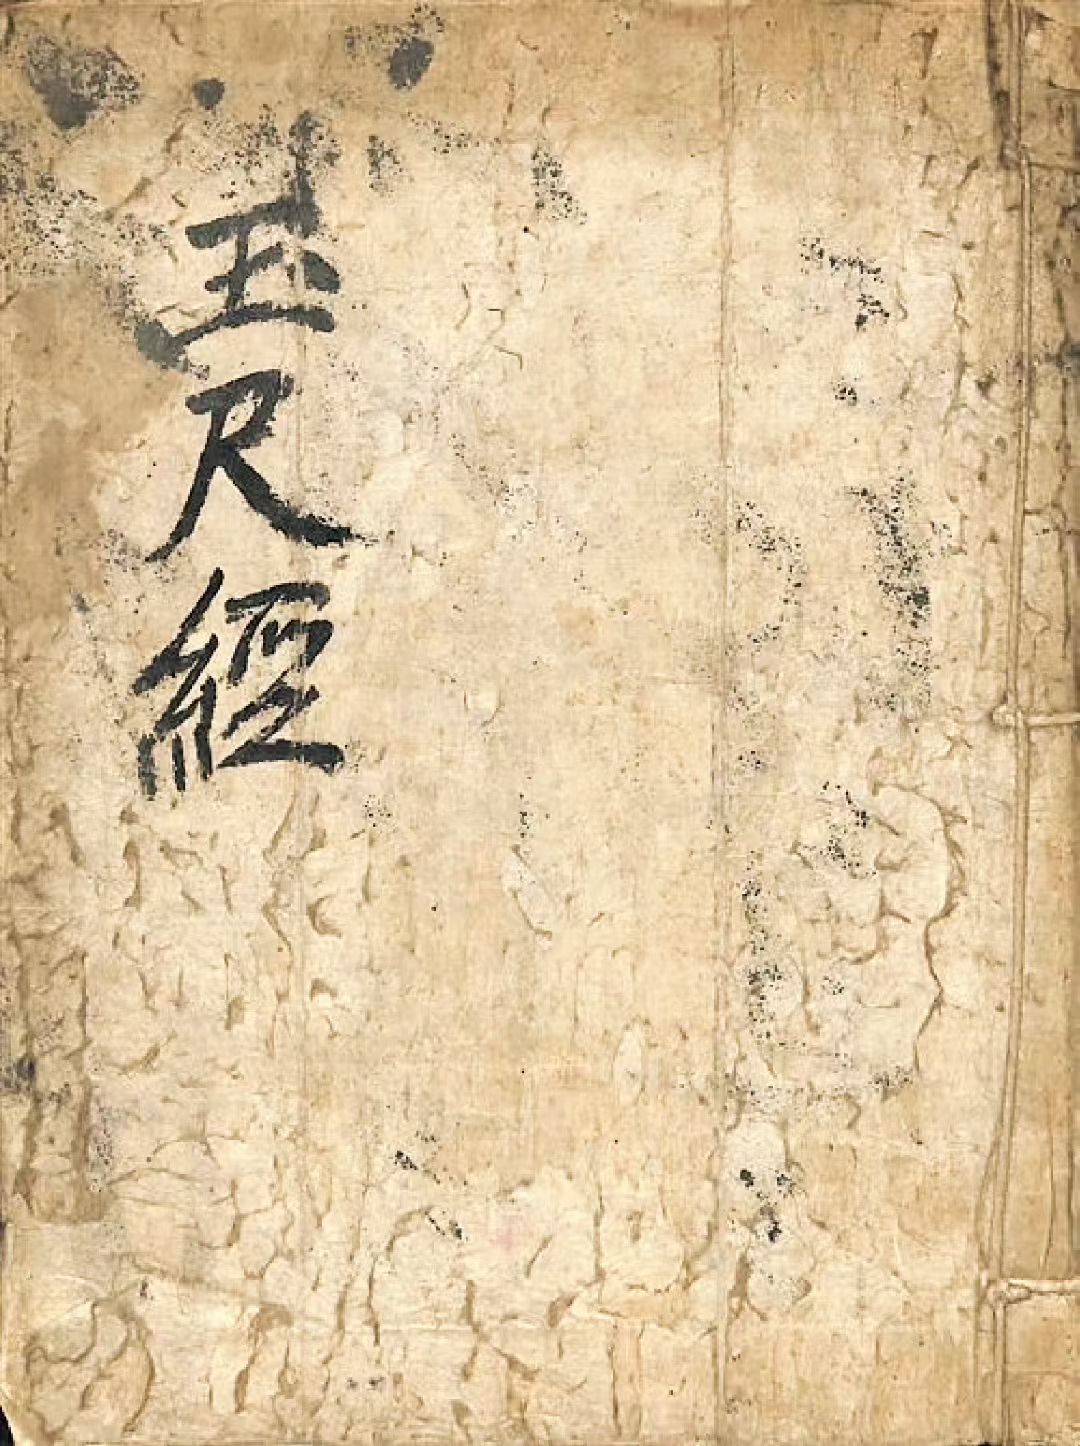 玉尺經